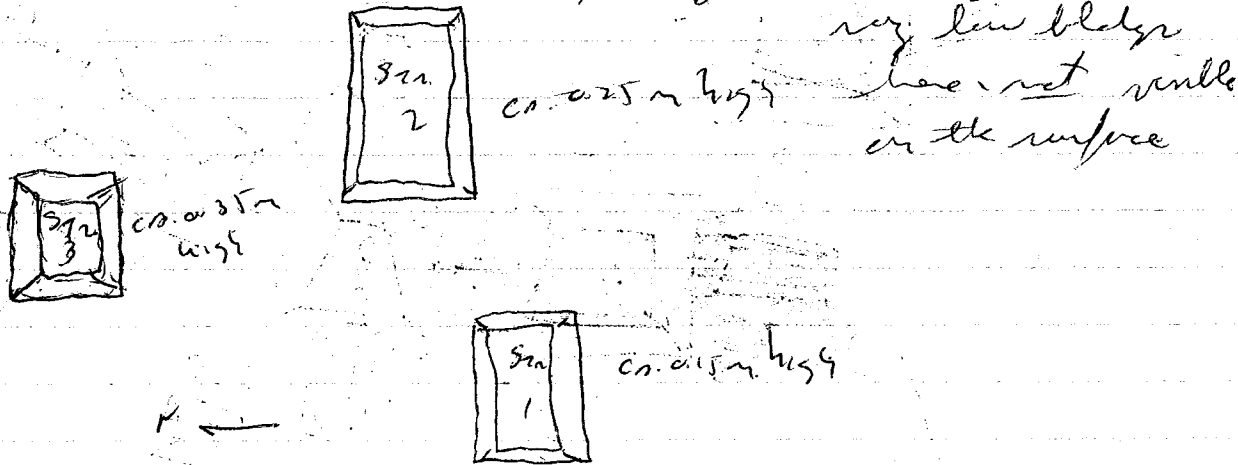 may low bldgs
here, not visible
on the surface
Str.
2
ca. 0.25 m high
Str.
3
ca. 0.35 m
high
Str.
1
ca. 0.15 m. high
N